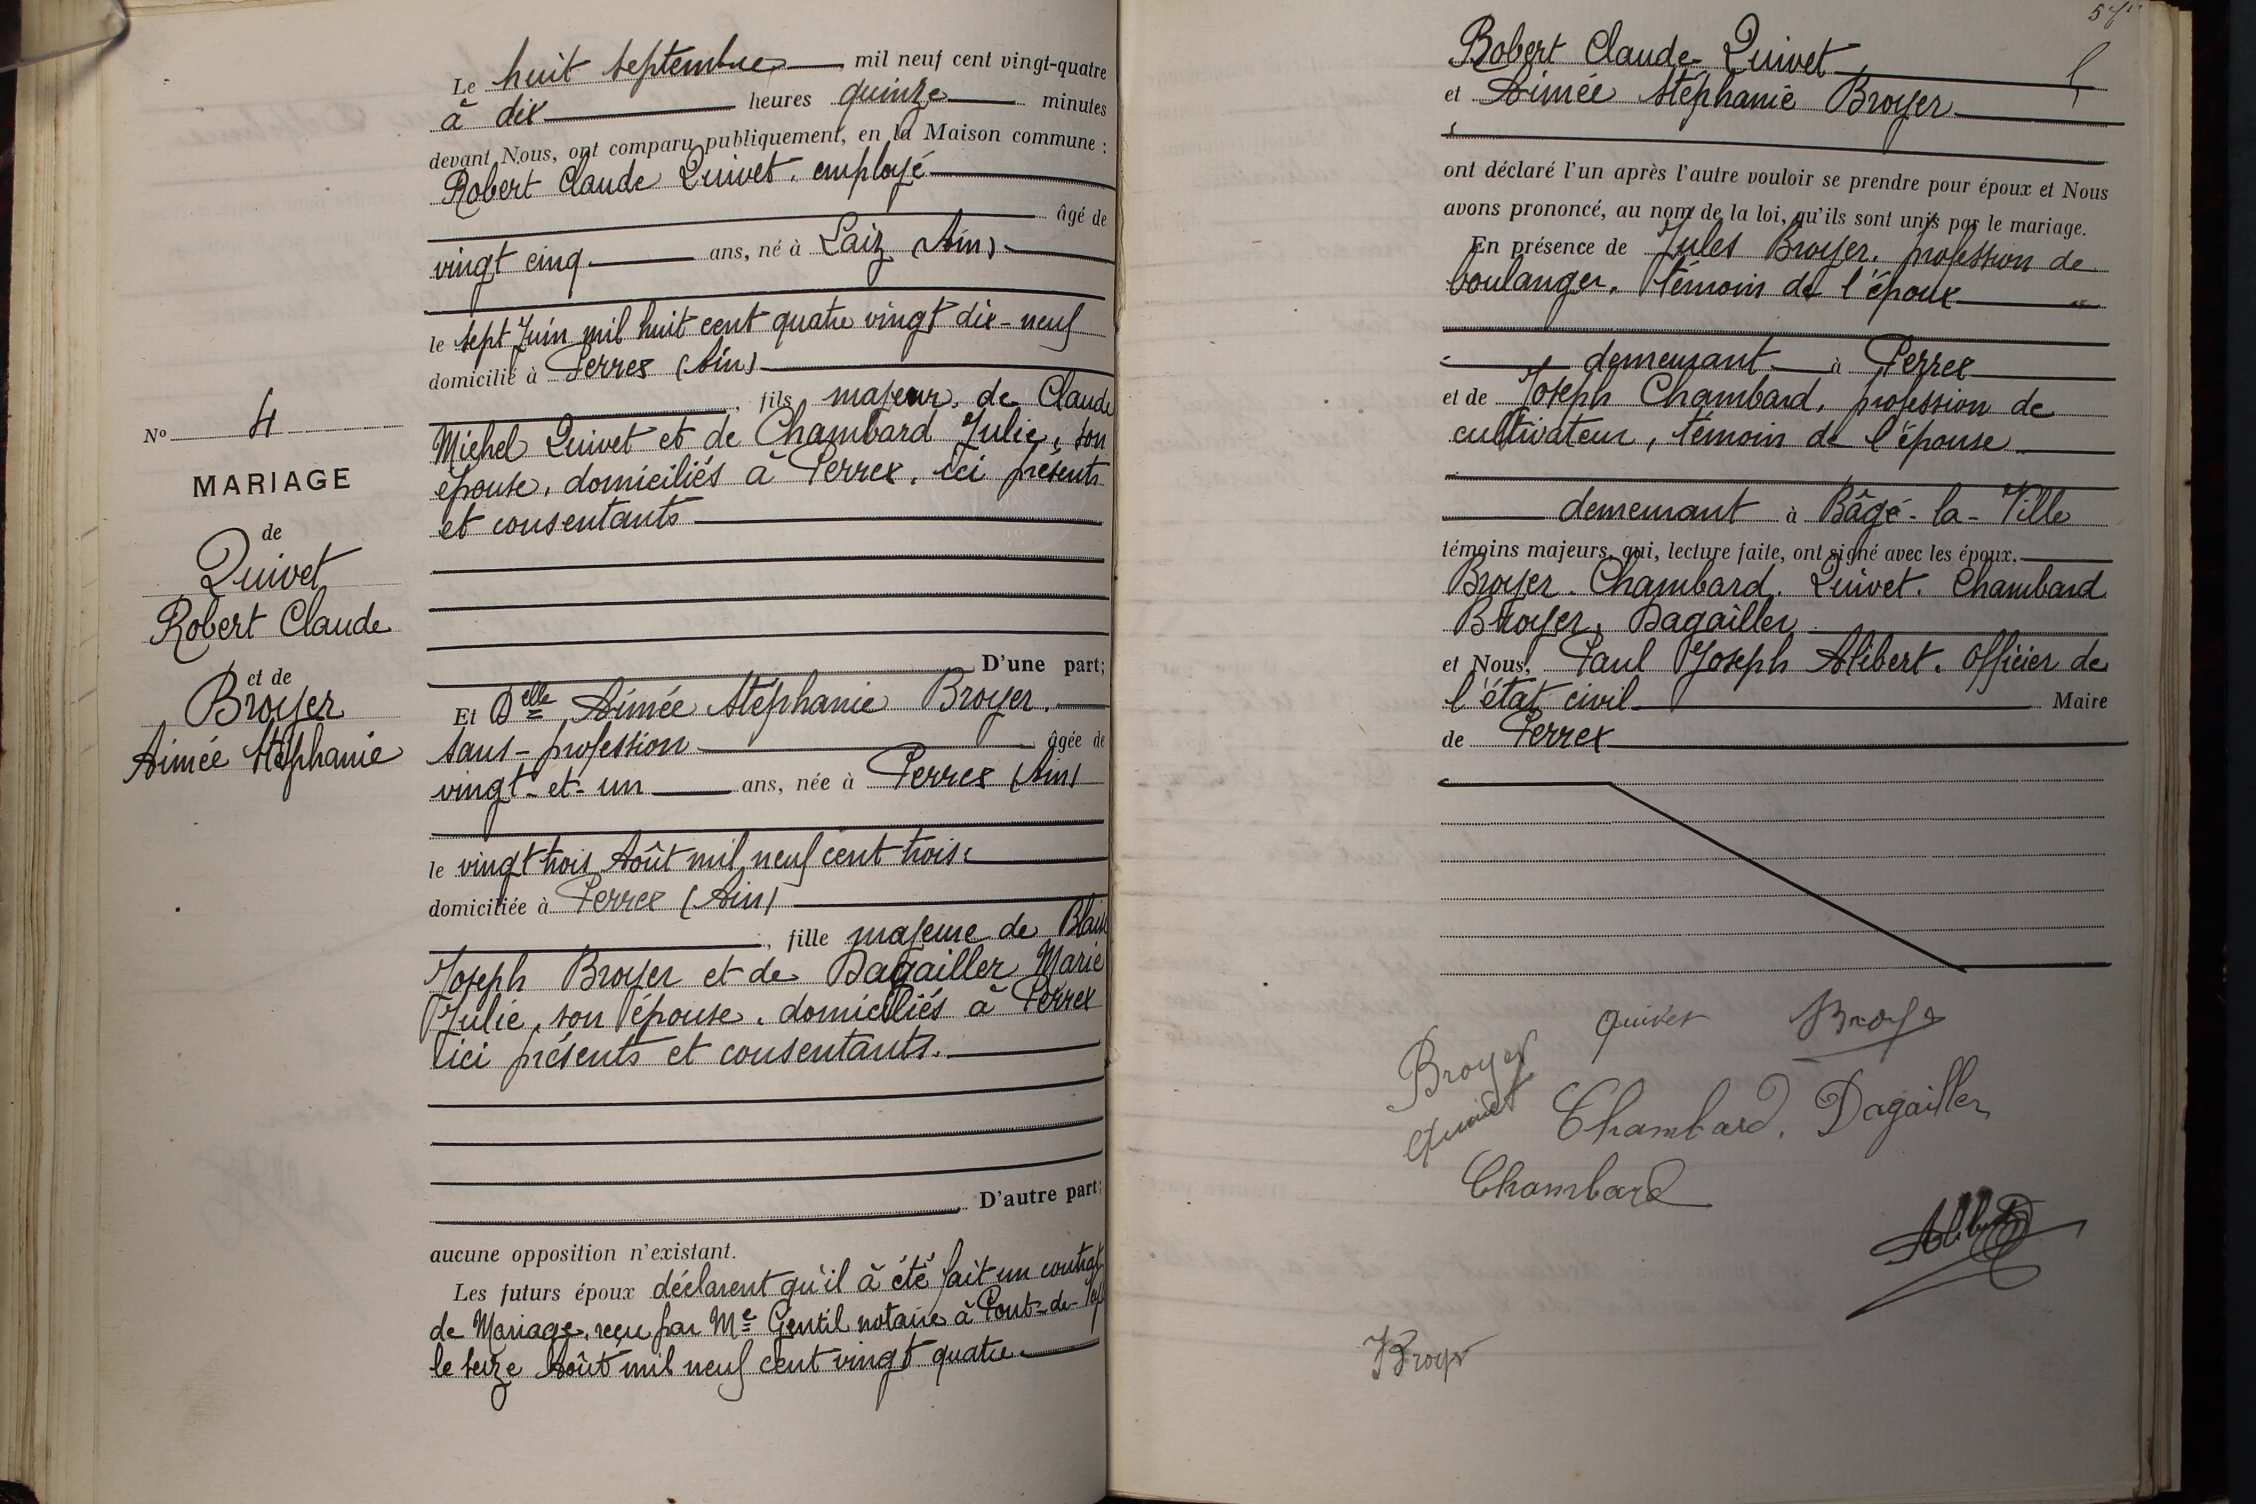 Le huit septembre mil neuf cent vingt-quatre
à dix heures quinze minutes
devant Nous, ont comparu publiquement, en la Maison commune :
Robert Claude Quivet, employé
âgé de
vingt cinq ans, né à Laiz (Ain)
le sept Juin mil huit cent quatre vingt dix-neuf
domicilié à Perrex (Ain)
, fils majeur, de Claude
Michel Quivet et de Chambard Julie, son
épouse, domiciliés à Perrex, ici présents
et consentants
D'une part;
Et Delle Aimée Stéphanie Broyer,
sans-profession âgée de
vingt-et-un ans, née à Perrex (Ain)
le vingt trois Août mil neuf cent trois
domiciliée à Perrex (Ain)
, fille majeure de
Joseph Broyer et de Dagailler Marie
Julie, son épouse, domiciliés à Perrex
ici présents et consentants.
D'autre part;
aucune opposition n'existant.
Les futurs époux déclarent qu'il à été fait un contrat
de Mariage, reçu par Me Gentil notaire à Pont-de-
le seize Août mil neuf cent vingt quatre
No 4
MARIAGE
de
Quivet
Robert Claude
et de
Broyer
Aimée Stéphanie
Robert Claude Quivet
et Aimée Stéphanie Broyer
ont déclaré l'un après l'autre vouloir se prendre pour époux et Nous
avons prononcé, au nom de la loi, qu'ils sont unis par le mariage.
En présence de Jules Broyer, profession de
boulanger, témoin de l'époux
demeurant à Perrex
et de Joseph Chambard, profession de
cultivateur, témoin de l'épouse
demeurant à Bâgé-la-Ville
témoins majeurs, qui, lecture faite, ont signé avec les époux.
Broyer. Chambard. Quivet. Chambard
Broyer, Dagailler
et Nous, Paul Joseph Alibert, Officier de
l'état civil Maire
de Perrex
Quivet Broyer
Broyer
Quivet
Chambard. Dagailler
Chambard
Alibert
Broyer